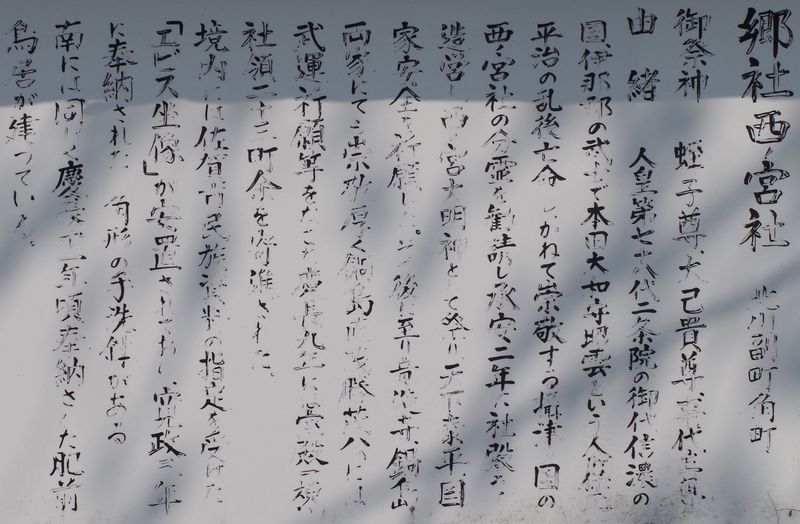 郷社西宮社 北川副町角町
御祭神 蛭子尊、大己貴尊、事代主
由緒 人皇第七十八代二条院の御代信濃の
国伊那郡の武士で本田大和守昭雲という人
平治の乱後亡命しかねて崇敬する摂津国の
西ノ宮社の分霊を勧請し承安二年に社殿を
造営し西ノ宮大明神として祭り天下泰平国
家安全を祈願した。その後に至り高木鍋島
両家にても崇敬厚く鍋島
武運祈願等をなさ 慶長九年に
社領二十三町余を寄進された。
境内には佐賀市民族資料の指定を受けた
「エビス坐像」が安置されており寛政三年
に奉納された 角形の手洗鉢がある
南には同じく慶長十一年頃奉納された肥前
鳥居が建っている。